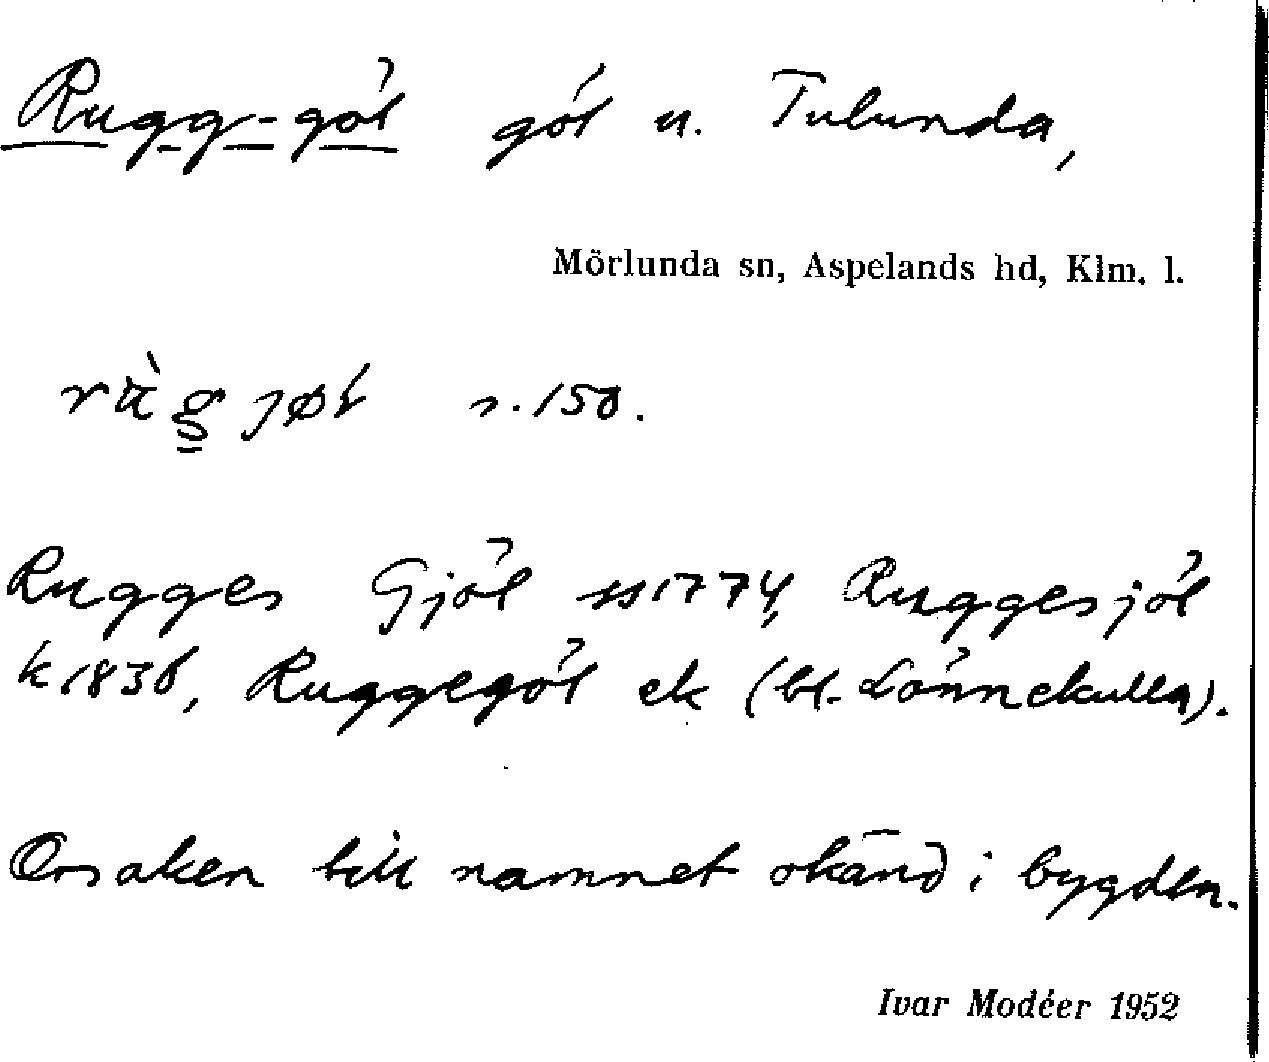 Rugg-göl göl u. Tulunda,
Mörlunda sn, Aspelands hd, Klm. l.
s. 150.
Rugges Gjöl ss 1774, Ruggesjöl
k 1838, Ruggegöl ek (bl. Lönnekulla).
Orsaken till namnet okänd i bygden.
Ivar Modéer 1952